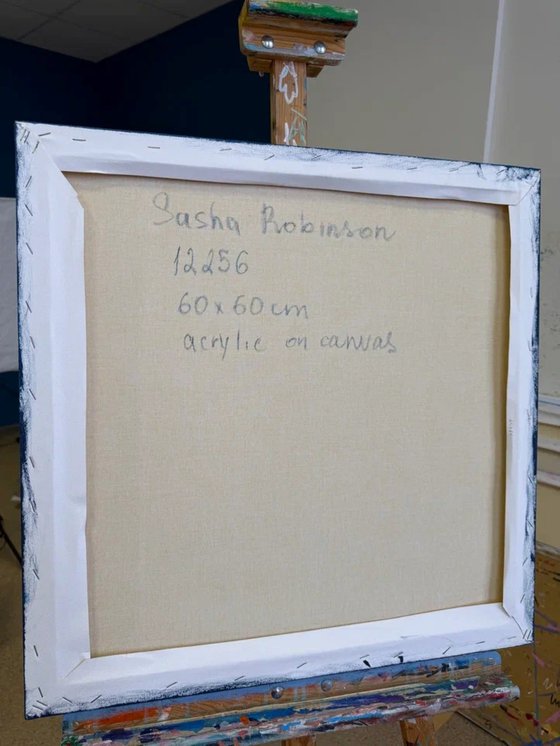 Sasha Robinson
12256
60x60cm
acrylic on canvas